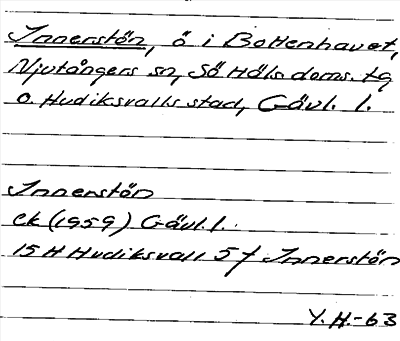 Innerstön, ö i Bottenhavet,
Njutångers sn, Sö Häls doms. tg
o. Hudiksvalls stad, Gävl. l.
Innerstön
ek (1959) Gävl. l.
15 H Hudiksvall 5 f Innerstön
Y. H.-63